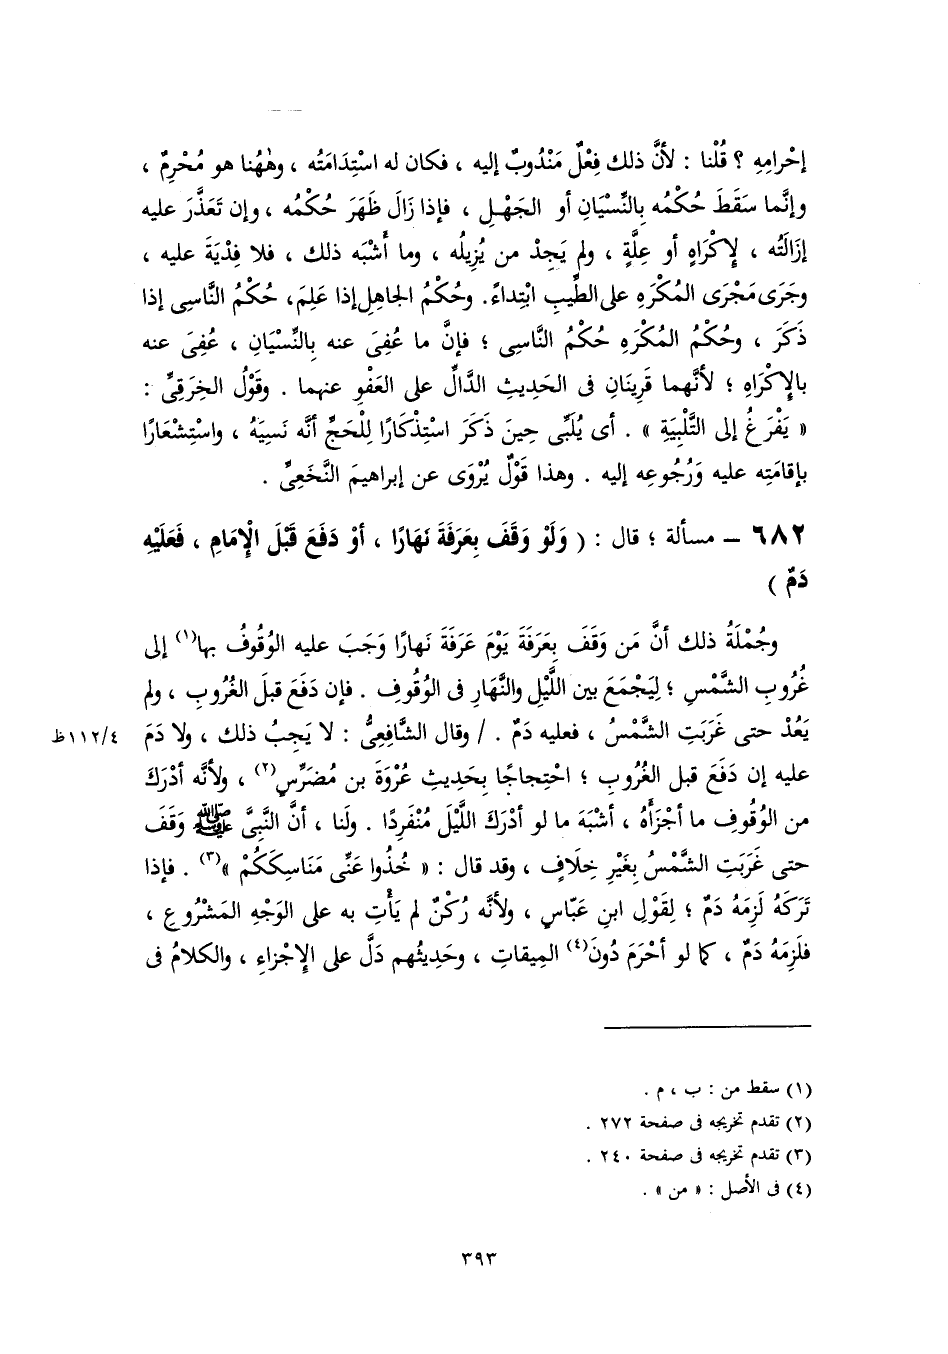 إحْرامِهِ ؟ قُلْنا : لأنَّ ذلك فِعْلٌ مَنْدُوبٌ إليه ، فكان له اسْتِدَامَتُه ، وهٰهُنا هو مُحْرِمٌ ،
وإنَّما سَقَطَ حُكْمُه بالنِّسْيَانِ أو الجَهْلِ ، فإذا زَالَ ظَهَرَ حُكْمُه ، وإن تَعَذَّرَ عليه
إزَالَتُه ، لإِكْرَاهٍ أو عِلَّةٍ ، ولم يَجِدْ من يُزِيلُه ، وما أَشْبَه ذلك ، فلا فِدْيَةَ عليه ،
وجَرَى مَجْرَى المُكْرَهِ على الطِّيبِ ابْتِداءً. وحُكْمُ الجاهِلِ إذا عَلِمَ، حُكْمُ النَّاسِى إذا
ذَكَرَ ، وحُكْمُ المُكْرَهِ حُكْمُ النَّاسِى ؛ فإنَّ ما عُفِىَ عنه بالنِّسْيَانِ ، عُفِىَ عنه
بالإِكْرَاهِ ؛ لأنَّهما قَرِينَان فى الحَديثِ الدَّالِّ على العَفْوِ عنهما . وقَوْلُ الخِرَقِىِّ :
« يَفْرَغُ إلى التَّلْبِيَةِ » . أى يُلَبِّى حِينَ ذَكَرَ اسْتِذْكَارًا لِلْحَجِّ أنَّه نَسِيَهُ ، واسْتِشْعَارًا
بإقامَتِه عليه وَرُجُوعِه إليه . وهذا قَوْلٌ يُرْوَى عن إبراهيمَ النَّخَعِىِّ .
٦٨٢ – مسألة ؛ قال : ( وَلَوْ وَقَفَ بِعَرَفَةَ نَهَارًا ، أوْ دَفَعَ قَبْلَ الْإِمَامِ ، فَعَلَيْهِ
دَمٌ )
وجُمْلَةُ ذلك أنَّ مَن وَقَفَ بِعَرَفَةَ يَوْمَ عَرَفَةَ نَهارًا وَجَبَ عليه الوُقُوفُ بها(١) إلى
غُرُوبِ الشَّمْسِ ؛ لِيَجْمَعَ بين اللَّيْلِ والنَّهَارِ فى الوُقُوفِ . فإن دَفَعَ قبلَ الغُرُوبِ ، ولم
يَعُدْ حتى غَرَبَتِ الشَّمْسُ ، فعليه دَمٌ . / وقال الشَّافِعِىُّ : لا يَجِبُ ذلك ، ولا دَمَ
٤/١١٢ظ
عليه إن دَفَعَ قبل الغُرُوبِ ؛ احْتِجاجًا بحَدِيثِ عُرْوَةَ بن مُضَرِّسٍ(٢) ، ولأنَّه أدْرَكَ
من الوُقُوفِ ما أجْزَأَهُ ، أشْبَهَ ما لو أدْرَكَ اللَّيْلَ مُنْفَرِدًا . ولَنا ، أنَّ النَّبِىَّ ﷺ وَقَفَ
حتى غَرَبَتِ الشَّمْسُ بغَيْرِ خِلَافٍ ، وقد قال : « خُذُوا عَنِّى مَنَاسِكَكُمْ »(٣) . فإذا
تَرَكَهُ لَزِمَهُ دَمٌ ؛ لِقَوْلِ ابنِ عَبَّاس ، ولأنَّه رُكْنٌ لم يَأْتِ به على الوَجْهِ المَشْرُوعِ ،
فلَزِمَهُ دَمٌ ، كما لو أحْرَمَ دُونَ(٤) المِيقاتِ ، وحَدِيثُهم دَلَّ على الإِجْزاءِ ، والكلامُ فى
(١) سقط من : ب ، م .
(٢) تقدم تخريجه فى صفحة ٢٧٢ .
(٣) تقدم تخريجه فى صفحة ٢٤٠ .
(٤) فى الأصل : « من » .
٣٩٣